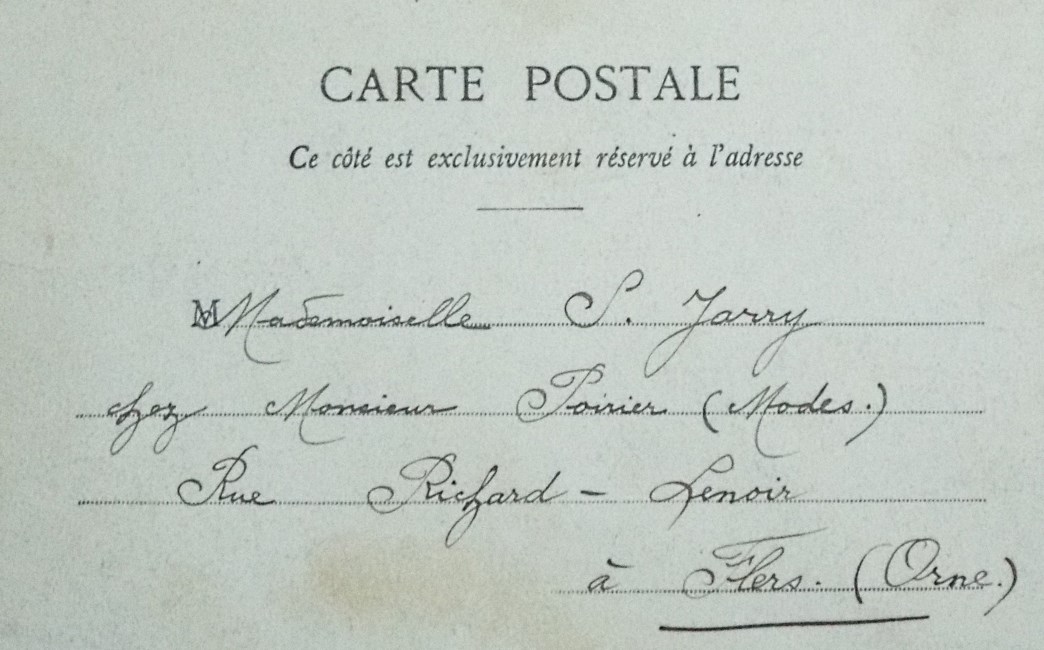 CARTE POSTALE
Ce côté est exclusivement réservé à l'adresse
M Mademoiselle S. Jarry
chez Monsieur Poirier (Modes.)
Rue Richard-Lenoir
à Flers. (Orne.)